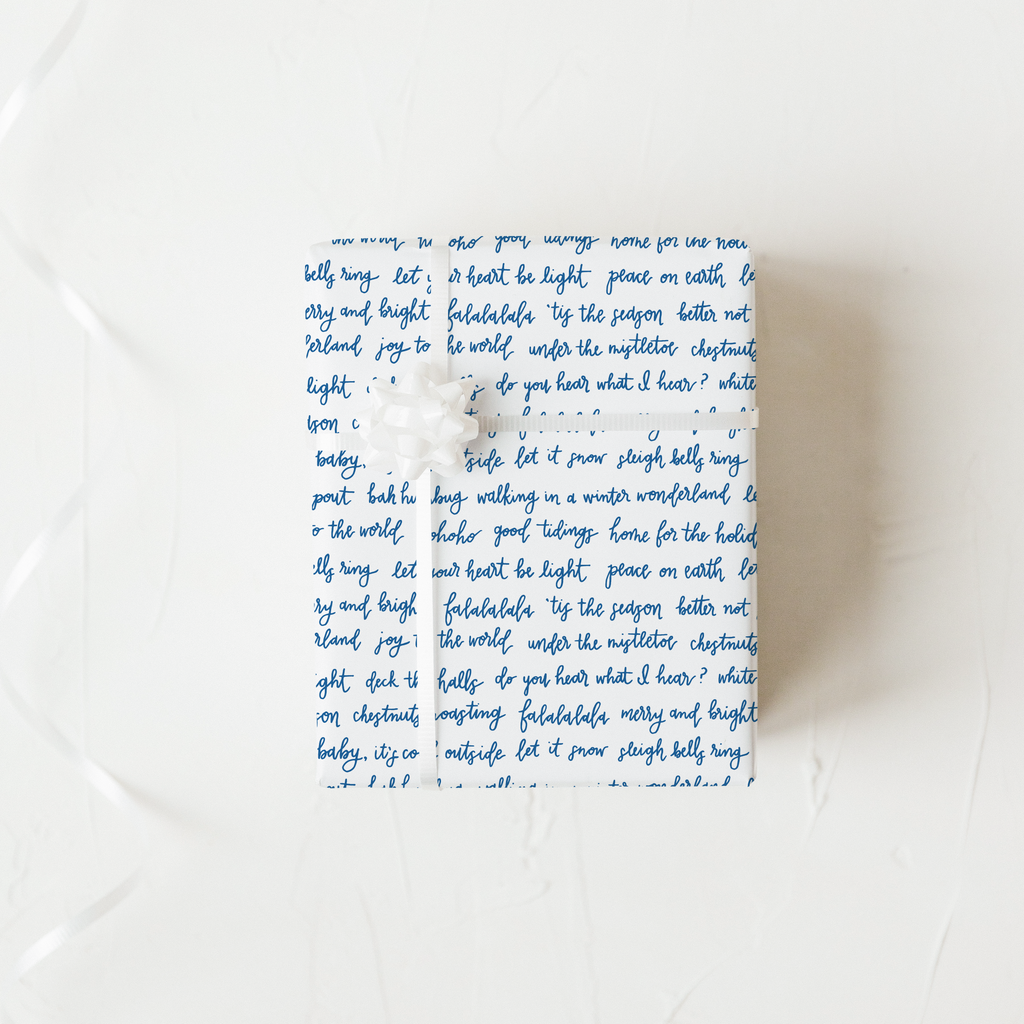 hohoho good tidings home for the
bells ring let your heart be light peace on earth
merry and bright falalalala 'tis the season better not
joy to the world under the mistletoe chestnuts
light do you hear what I hear? white
baby, outside let it snow sleigh bells ring
pout bah humbug walking in a winter wonderland
to the world hohoho good tidings home for the holid
bells ring let your heart be light peace on earth
merry and bright falalalala 'tis the season better not
joy to the world under the mistletoe chestnuts
light deck the halls do you hear what I hear? white
chestnuts roasting falalalala merry and bright
baby, it's cold outside let it snow sleigh bells ring